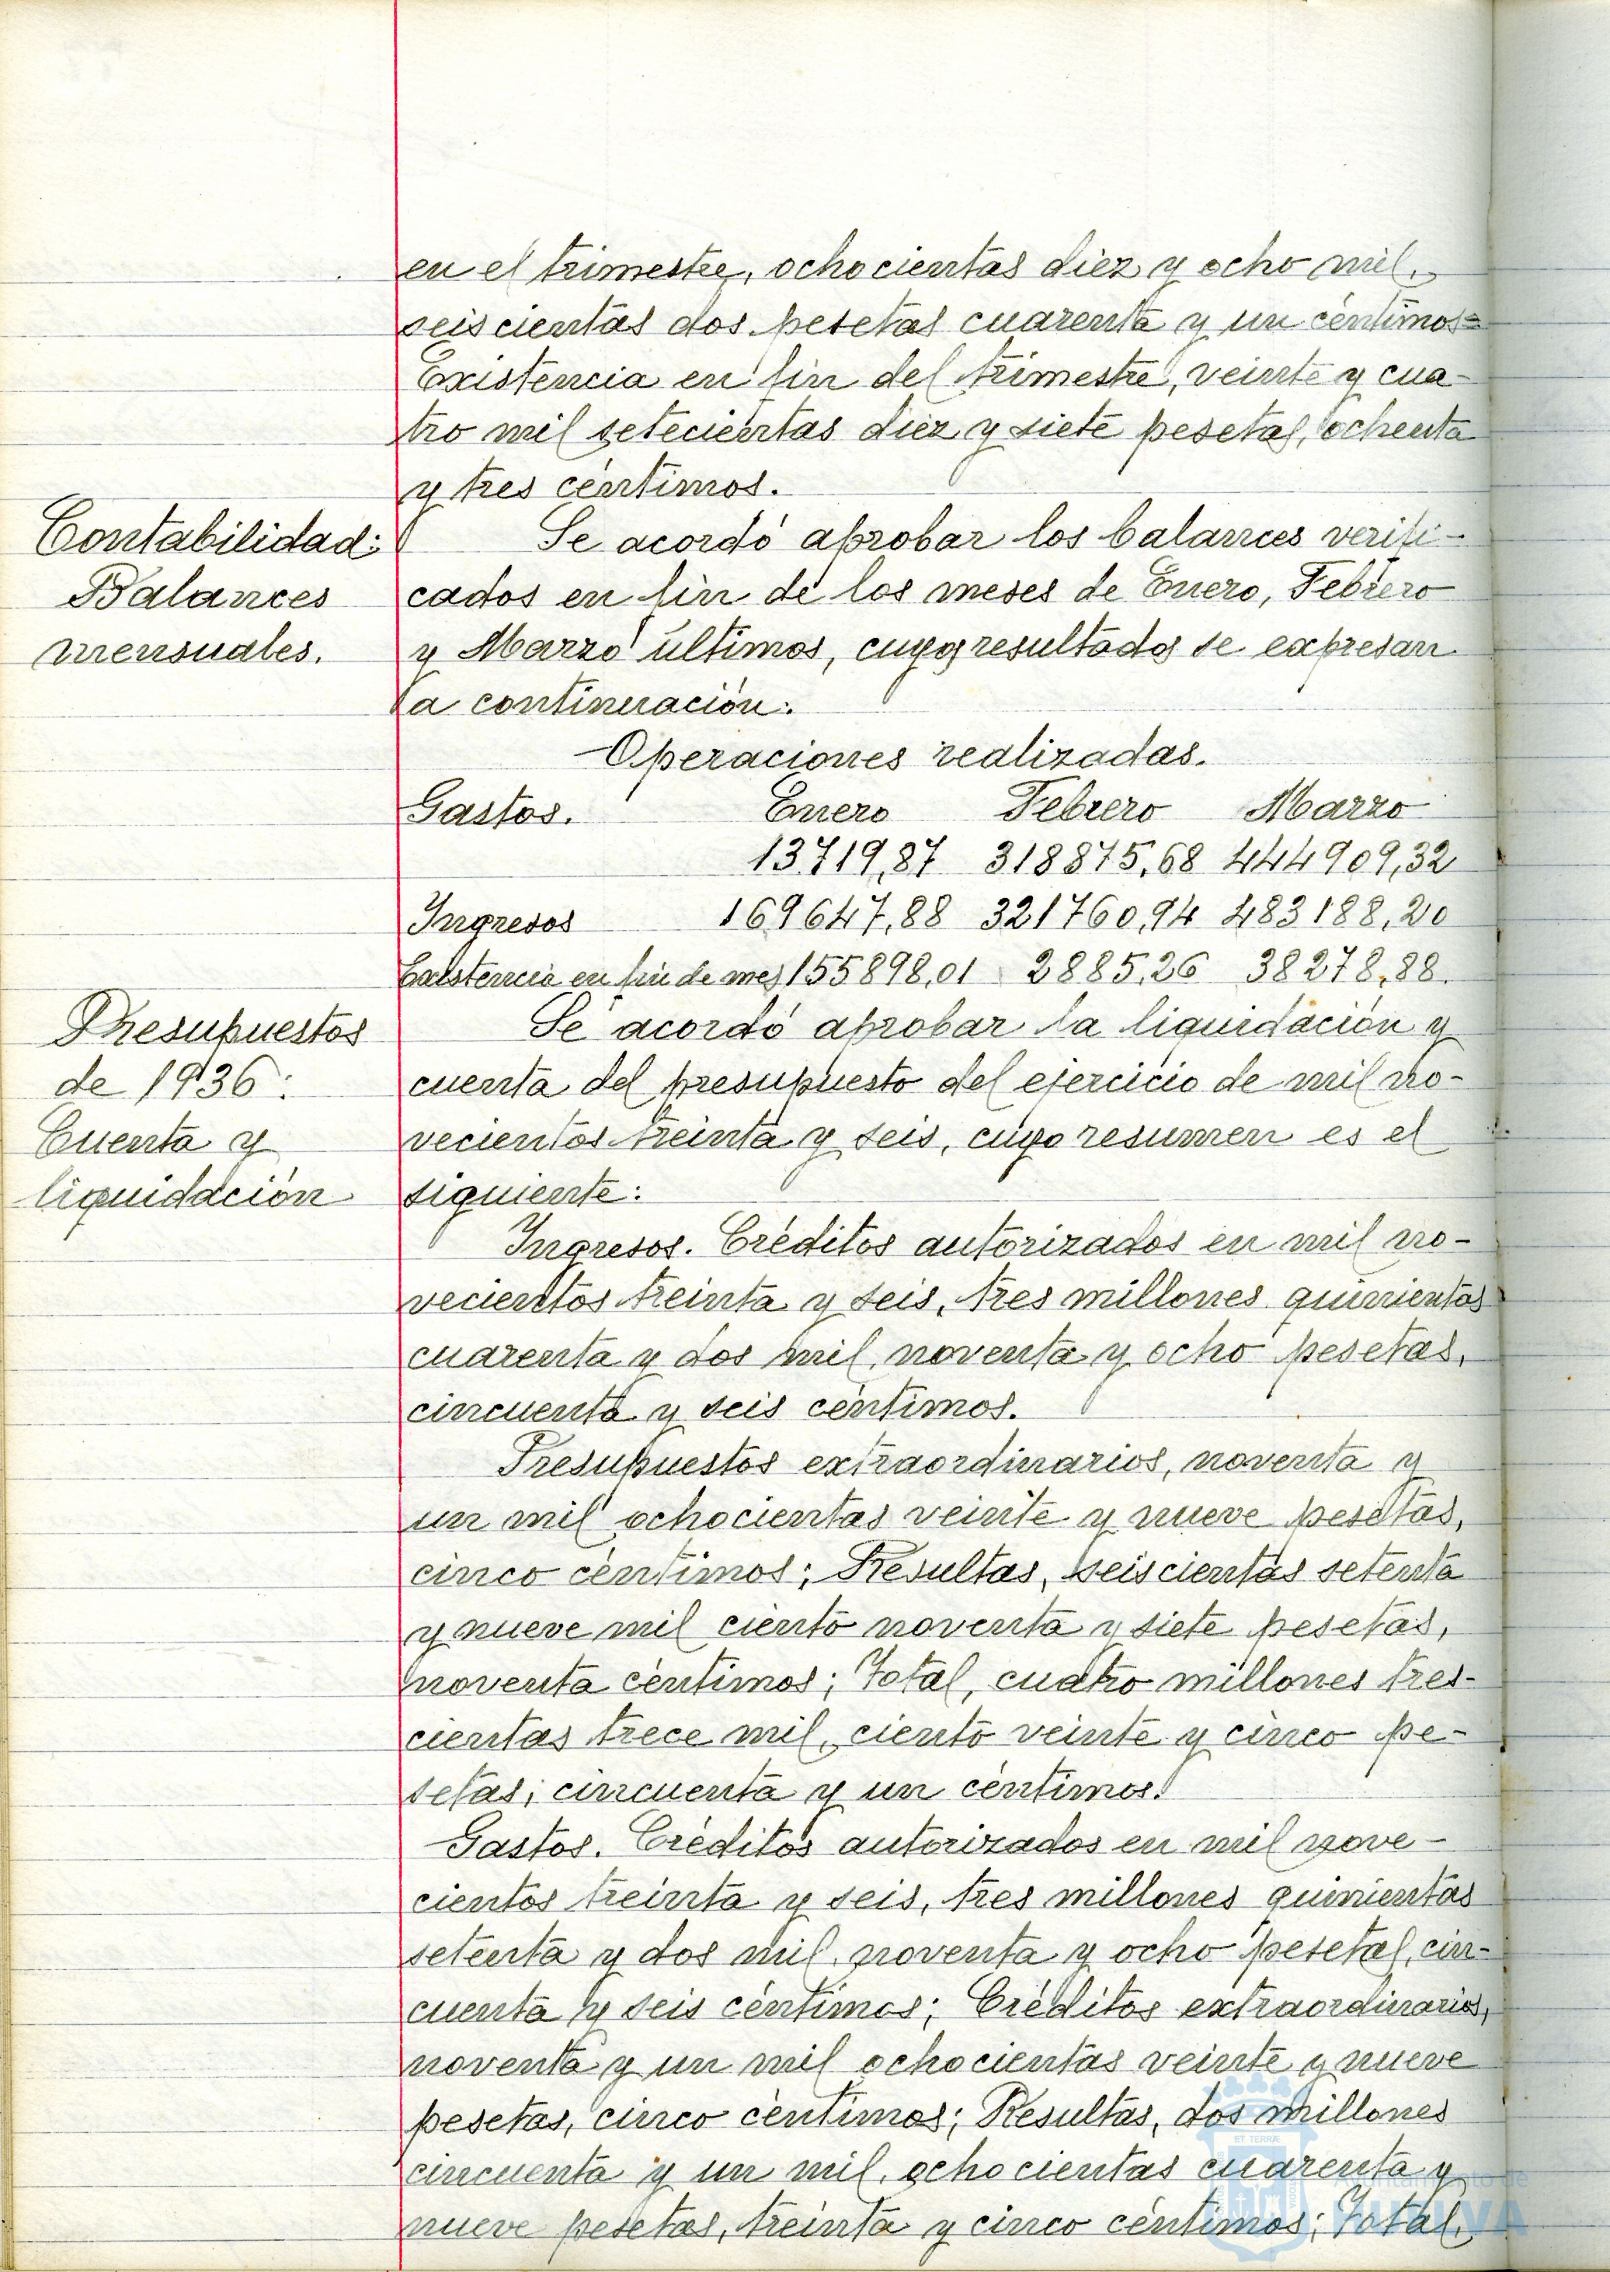 en el trimestre, ochocientas diez y ocho mil,
seiscientas dos pesetas cuarenta y un céntimos=
Existencia en fin del trimestre, veinte y cua-
tro mil setecientas diez y siete pesetas, ochenta
y tres céntimos.
Contabilidad:
Balances
mensuales.
Se acordó aprobar los balances verifi-
cados en fin de los meses de Enero, Febrero
y Marzo últimos, cuyos resultados se expresan
a continuación:
Operaciones realizadas.
Gastos. Enero Febrero Marzo
13.719,87 318875,68 444909,32
Ingresos 169647,88 321760,94 483188,20
Existencia en fin de mes 155898,01 2885,26 38278,88.
Presupuestos
de 1936:
Cuenta y
liquidación
Se acordó aprobar la liquidación y
cuenta del presupuesto del ejercicio de mil no-
vecientos treinta y seis, cuyo resumen es el
siguiente:
Ingresos. Créditos autorizados en mil no-
vecientos treinta y seis, tres millones quinientas
cuarenta y dos mil, noventa y ocho pesetas,
cincuenta y seis céntimos.
Presupuestos extraordinarios, noventa y
un mil ochocientas veinte y nueve pesetas,
cinco céntimos; Resultas, seiscientas setenta
y nueve mil ciento noventa y siete pesetas,
noventa céntimos; Total, cuatro millones tres-
cientas trece mil, ciento veinte y cinco pe-
setas; cincuenta y un céntimos.
Gastos. Créditos autorizados en mil nove-
cientos treinta y seis, tres millones quinientas
setenta y dos mil, noventa y ocho pesetas, cin-
cuenta y seis céntimos; Créditos extraordinarios,
noventa y un mil ochocientas veinte y nueve
pesetas, cinco céntimos; Resultas, dos millones
cincuenta y un mil, ochocientas cuarenta y
nueve pesetas, treinta y cinco céntimos; Total,